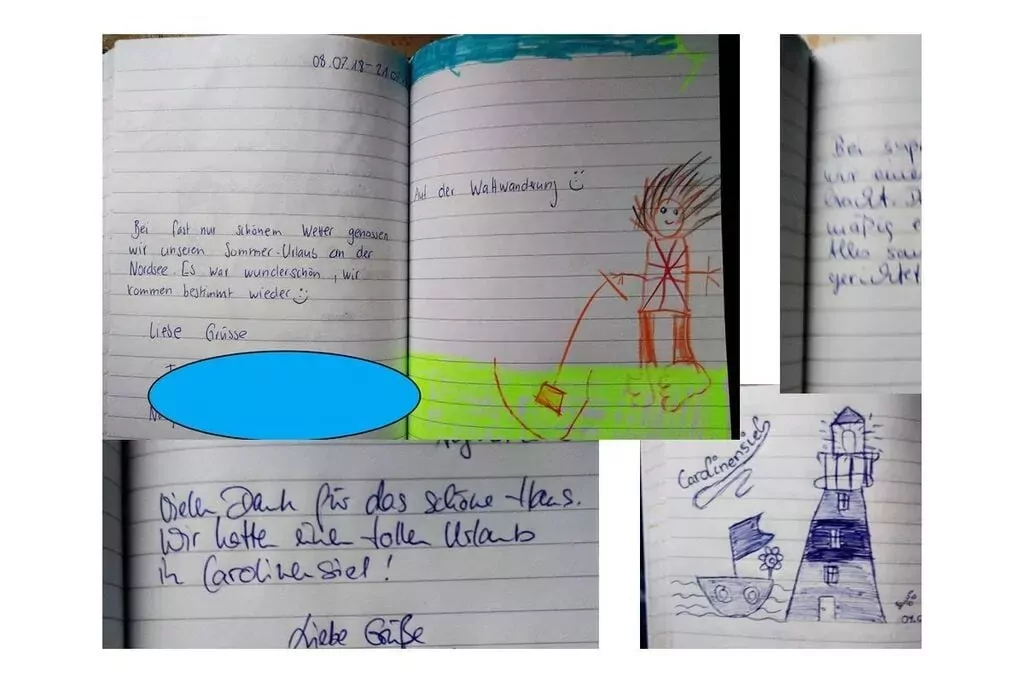 08.07.18-21.07.
Bei fast nur schönem Wetter genossen
wir unseren Sommer-Urlaub an der
Nordsee. Es war wunderschön, wir
kommen bestimmt wieder
Liebe Grüsse
Auf der Wattwanderung
Bei
wir eine
mäßig e
Alles
Vielen Dank für das schöne Haus.
Wir hatten einen tollen Urlaub
in Carolinensiel!
Liebe Grüße
Carolinensiel